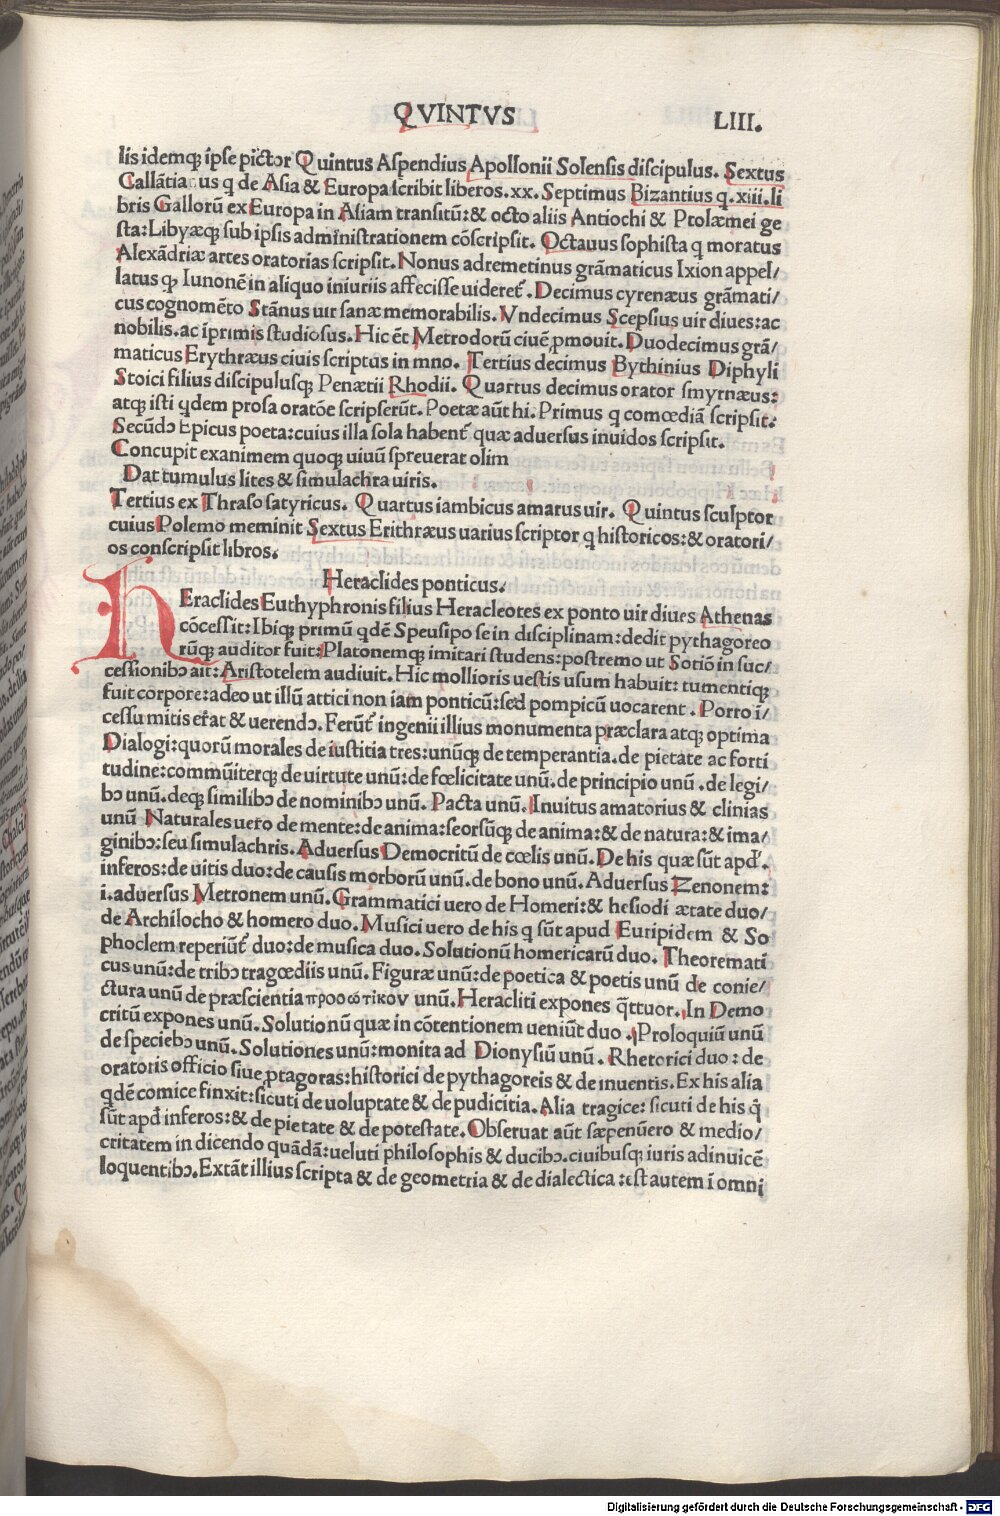 QVINTVS
LIII.
lis idemq; ip̄se pictor Quintus Aspendius Apollonii Solensis discipulus. Sextus
Gallãtia us q de Asia & Europa scribit liberos.xx. Septimus Bizantius q.xiii.li
bris Gallorũ ex Europa in Asiam transitũ:& octo aliis Antiochi & Ptolæmei ge
sta:Libyæq; sub ipsis administrationem cõscripsit. Octauus sophista q moratus
Alexãdriæ artes oratorias scripsit. Nonus adremetinus grãmaticus Ixion appel/
latus q̃ Iunonẽ in aliquo iniuriis affecisse uideret̃. Decimus cyrenæus grãmati/
cus cognomẽto Stãnus uir sanæ memorabilis. Vndecimus Scepsius uir diues:ac
nobilis.ac ĩprimis studiosus. Hic ẽt Metrodorũ ciuẽ ꝓmouit. Duodecimus grã/
maticus Erythræus ciuis scriptus in mno. Tertius decimus Bythinius Diphyli
Stoici filius discipulusq; Penætii Rhodii. Quartus decimus orator smyrnæus:
atq; isti qdem prosa oratõe scripserũt. Poetæ aũt hi. Primus q comœdiã scripsit:
Secũdɔ Epicus poeta:cuius illa sola habent̃ quæ aduersus inuidos scripsit.
Concupit exanimem quoq; uiuũ spreuerat olim
Dat tumulus lites & simulachra uiris.
Tertius ex Thraso satyricus. Quartus iambicus amarus uir. Quintus sculptor
cuius Polemo meminit Sextus Erithræus uarius scriptor q historicos:& oratori/
os conscripsit libros.
Heraclides ponticus.
HEraclides Euthyphronis filius Heracleotes ex ponto uir diues Athenas
cõcessit:Ibiq; primũ qdẽ Speusipo se in disciplinam:dedit pythagoreo
rũq; auditor fuit:Platonemq; imitari studens:postremo ut Sotiõ in suc/
cessionibɔ ait: Aristotelem audiuit. Hic mollioris uestis usum habuit: tumentiq;
fuit corpore:adeo ut illũ attici non iam ponticũ:sed pompicũ uocarent . Porro ĩ/
cessu mitis er̃at & uerendɔ. Ferũt̃ ingenii illius monumenta præclara atq; optima
Dialogi:quorũ morales de iustitia tres:unũq; de temperantia.de pietate ac forti
tudine:commũiterq; de uirtute unũ:de fœlicitate unũ.de principio unũ .de legi/
bɔ unũ.deq; similibɔ de nominibɔ unũ. Pacta unũ. Inuitus amatorius & clinias
unũ Naturales uero de mente:de anima:seorsũq; de anima:& de natura:& ima/
ginibɔ:seu simulachris. Aduersus Democritũ de cœlis unũ. De his quæ sũt apđ.
inferos:de uitis duo:de causis morborũ unũ.de bono unũ. Aduersus Zenonem:
i.aduersus Metronem unũ. Grammatici uero de Homeri:& hesiodi ætate duo/
de Archilocho & homero duo. Musici uero de his q sũt apud Euripidem & So
phoclem reperiũt̃ duo:de musica duo. Solutionũ homericarũ duo. Theoremati
cus unũ:de tribɔ tragœdiis unũ. Figuræ unũ:de poetica & poetis unũ de conie/
ctura unũ de præscientia προοωτικον unũ. Heracliti expones q̃ttuor. In Demo
critũ expones unũ. Solutionũ quæ in cõtentionem ueniũt duo . Proloquiũ unũ
de speciebɔ unũ. Solutiones unũ:monita ad Dionysiũ unũ. Rhetorici duo: de
oratoris officio siue ꝓtagoras:historici de pythagoreis & de inuentis. Ex his alia
qdẽ comice finxit:sicuti de uoluptate & de pudicitia. Alia tragice: sicuti de his q̃
sũt apđ inferos:& de pietate & de potestate. Obseruat aũt sæpenũero & medio/
critatem in dicendo quãdã:ueluti philosophis & ducibɔ.ciuibusq; iuris adinuicẽ
loquentibɔ. Extãt illius scripta & de geometria & de dialectica :est autem ĩ omni
Digitalisierung gefördert durch die Deutsche Forschungsgemeinschaft - DFG